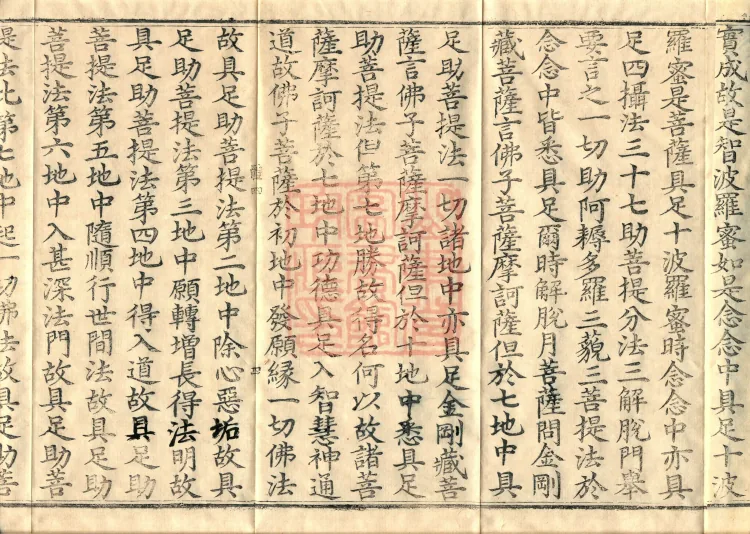 實成故是智波羅蜜如是念念中具足十波
羅蜜是菩薩具足十波羅蜜時念念中亦具
足四攝法三十七助菩提分法三解脫門舉
要言之一切助阿耨多羅三藐三菩提法於
念念中皆悉具足爾時解脫月菩薩問金剛
藏菩薩言佛子菩薩摩訶薩但於七地中具
足助菩提法一切諸地中亦具足金剛藏菩
薩言佛子菩薩摩訶薩但於十地中悉具足
助菩提法但第七地勝故得名何以故諸菩
薩摩訶薩於七地中功德具足入智慧神通
道故佛子菩薩於初地中發願緣一切佛法
故具足助菩提法第二地中除心惡垢故具
足助菩提法第三地中願轉增長得法明故
具足助菩提法第四地中得入道故具足助
菩提法第五地中隨順行世間法故具足助
菩提法第六地中入甚深法門故具足助菩
提法此第七地中起一切佛法故具足助菩